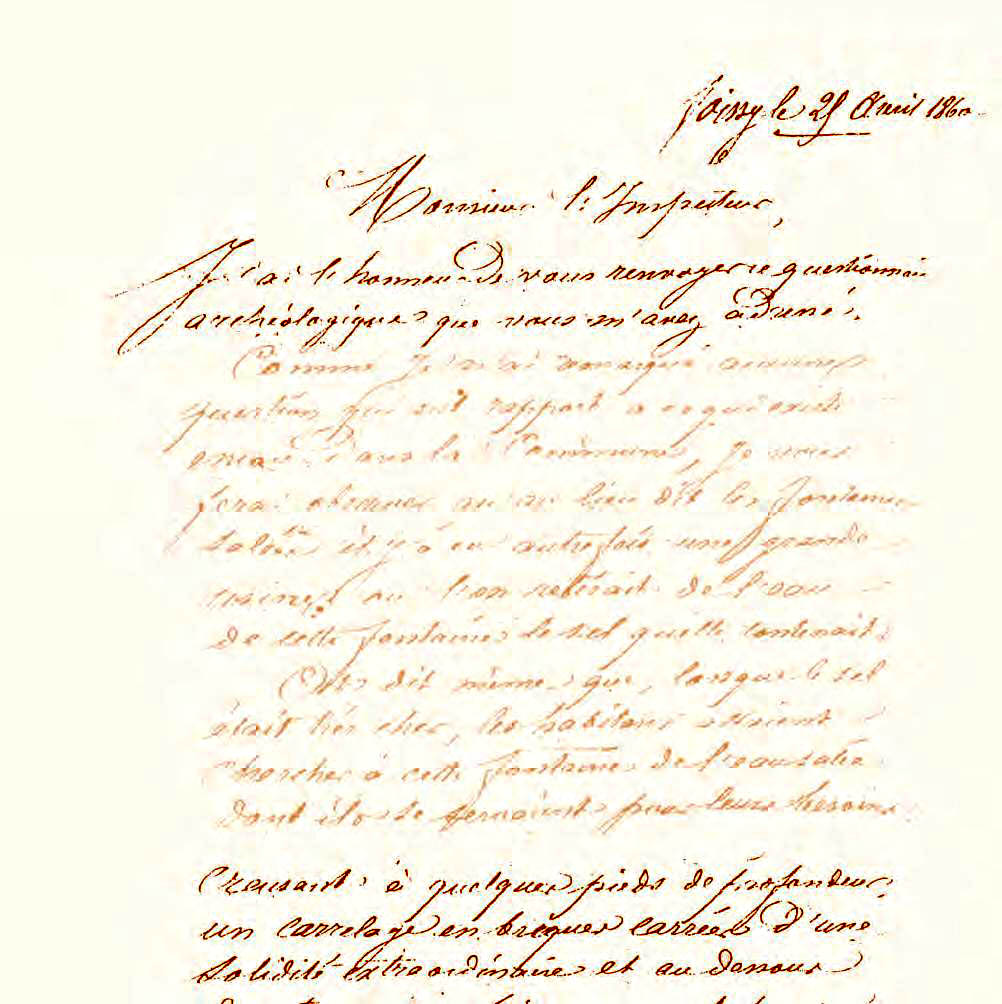 Foissy le 25 Avril 1860
Monsieur l'Inspecteur,
J'ai l'honneur de vous renvoyer le questionnaire
archéologique que vous m'avez adressé.
Comme je n'ai remarqué aucune
question qui soit rapport a ce qui existe
dans la Commune, je vous
ferai observer qu'au lieu dit les fontaines
Salées il y a eu autrefois une grande
usine où l'on retirait de l'eau
de cette fontaine le sel qu'elle contenait.
On dit même que, lorsque le sel
était très cher, les habitans allaient
chercher à cette fontaine de l'eau salée
dont ils se servaient pour leurs besoins
Creusant à quelques pieds de profondeur,
un carrelage en briques carrées d'une
solidité extraordinaire et au dessous